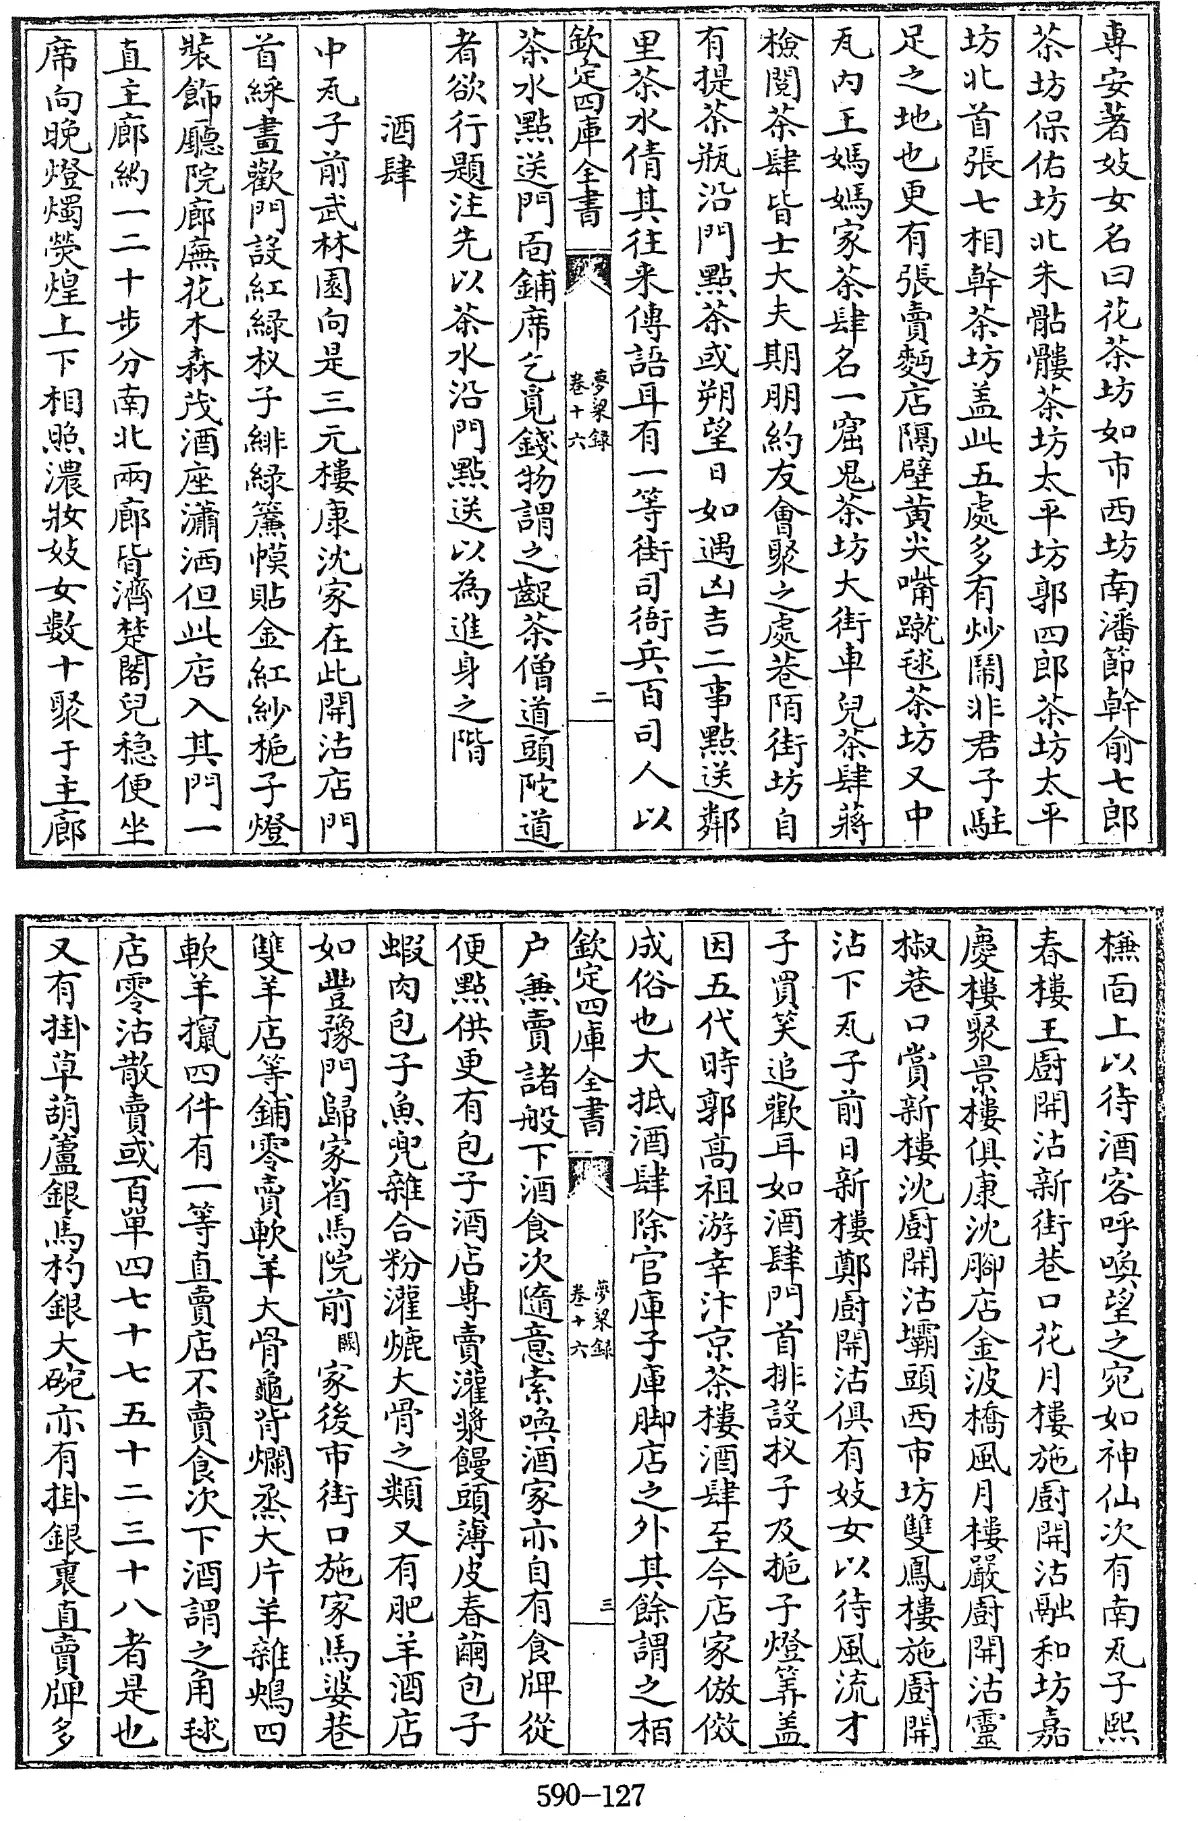 專安著妓女名曰花茶坊如市西坊南潘節幹俞七郎
茶坊保佑坊北朱骷髏茶坊太平坊郭四郎茶坊太平
坊北首張七相幹茶坊盖此五處多有炒鬧非君子駐
足之地也更有張賣麪店隔壁黄尖嘴蹴毬茶坊又中
瓦内王媽媽家茶肆名一窟鬼茶坊大街車兒茶肆蔣
檢閲茶肆皆士大夫期朋約友會聚之處巷陌街坊自
有提茶瓶沿門點茶或朔望日如遇凶吉二事點送鄰
里茶水倩其往来傳語耳有一等街司衙兵百司人以
欽定四庫全書
夢粱録
卷十六
二
茶水點送門面鋪席乞覓錢物謂之齪茶僧道頭陀道
者欲行題注先以茶水沿門點送以為進身之階
酒肆
中瓦子前武林園向是三元樓康沈家在此開沽店門
首綵畫歡門設紅緑杈子緋緑簾幙貼金紅紗梔子燈
裝飾廳院廊廡花木森茂酒座瀟洒但此店入其門一
直主廊約一二十步分南北兩廊皆濟楚閣兒穩便坐
席向晚燈燭熒煌上下相照濃妝妓女數十聚于主廊
槏面上以待酒客呼喚望之宛如神仙次有南瓦子熙
春樓王廚開沽新街巷口花月樓施廚開沽融和坊嘉
慶樓聚景樓俱康沈脚店金波橋風月樓嚴廚開沽靈
椒巷口賞新樓沈廚開沽壩頭西市坊雙鳳樓施廚開
沽下瓦子前日新樓鄭廚開沽俱有妓女以待風流才
子買笑追歡耳如酒肆門首排設杈子及梔子燈等盖
因五代時郭高祖游幸汴京茶樓酒肆至今店家倣傚
成俗也大抵酒肆除官庫子庫脚店之外其餘謂之栢
欽定四庫全書
夢粱録
卷十六
三
户兼賣諸般下酒食次隨意索喚酒家亦自有食牌從
便點供更有包子酒店專賣灌漿饅頭薄皮春繭包子
蝦肉包子魚兜雜合粉灌熝大骨之類又有肥羊酒店
如豐豫門歸家省馬院前闕家後市街口施家馬婆巷
雙羊店等鋪零賣軟羊大骨龜背爛蒸大片羊雜䳓四
軟羊撺四件有一等直賣店不賣食次下酒謂之角毬
店零沽散賣或百單四七十七五十二三十八者是也
又有掛草葫蘆銀馬杓銀大碗亦有掛銀裹直賣牌多
590-127